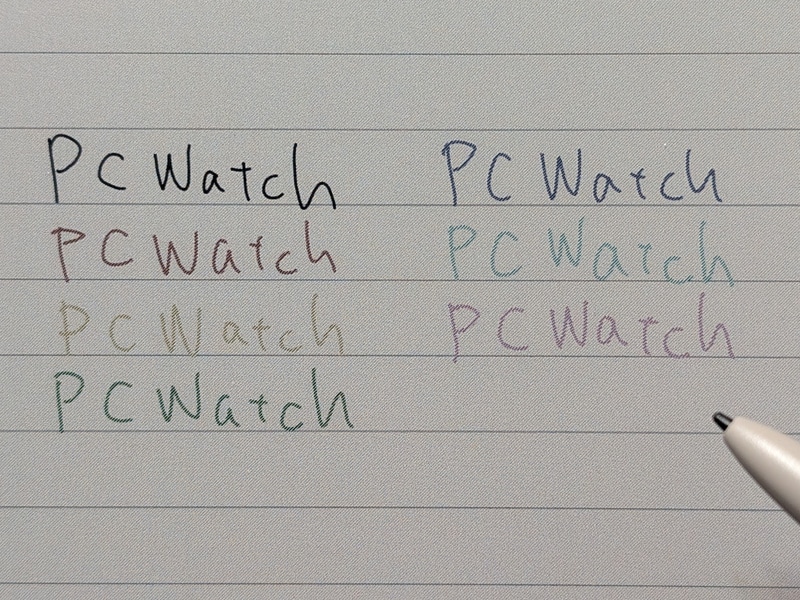 PC Watch PC Watch
PC Watch PC Watch
PC Watch PC Watch
PC Watch